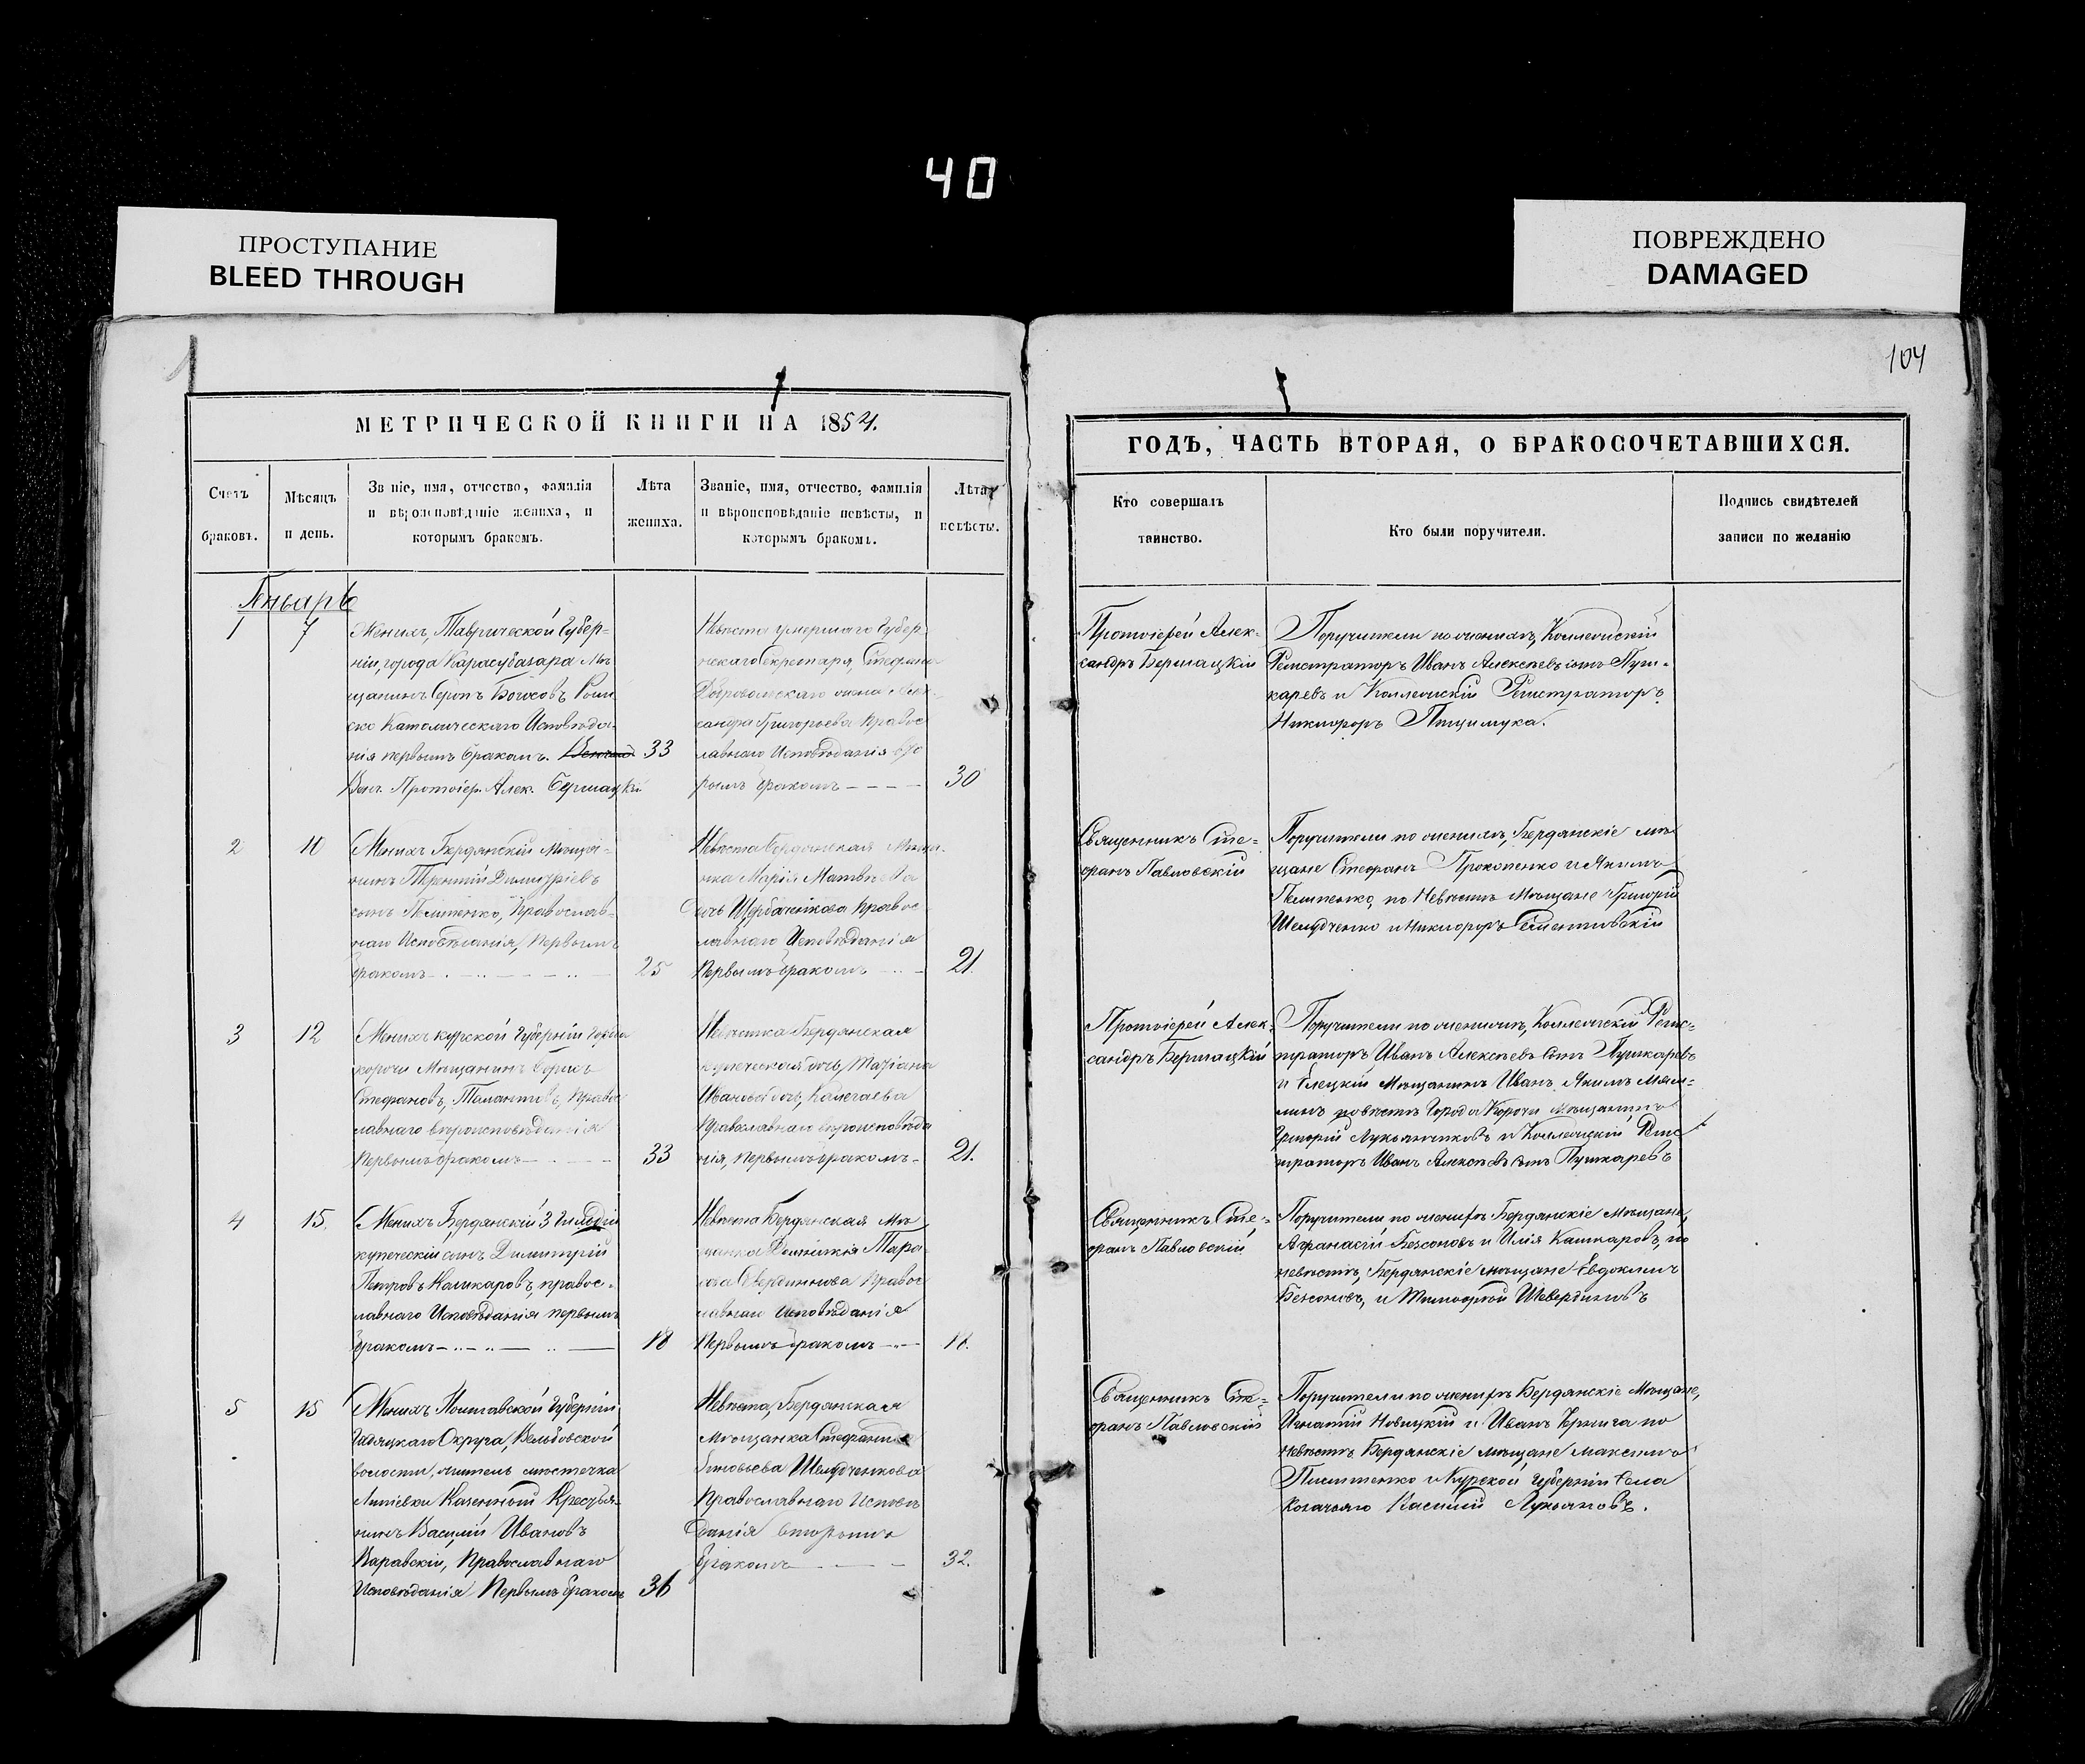 40
ПРОСТУПАНИЕ
BLEED THROUGH
ПОВРЕЖДЕНО
DAMAGED
104
МЕТРИЧЕСКОЙ КНИГИ НА 1854.
Счетъ браковъ.
Мѣсяцъ и день.
Званіе, имя, отчество, фамилія
и вѣроисповѣданіе жениха, и
которымъ бракомъ.
Лѣта жениха.
Званіе, имя, отчество, фамилія
и вѣроисповѣданіе невѣсты, и
которымъ бракомъ.
Лѣта невѣсты.
ГОДЪ, ЧАСТЬ ВТОРАЯ, О БРАКОСОЧЕТАВШИХСЯ.
Кто совершалъ
таинство.
Кто были поручители.
Подпись свидѣтелей
записи по желанію
Генварь
1
7
Женихъ, Таврической Губер-
ніи, города Карасубазара Мѣ
щанинъ
Католическаго Исповѣда-
нія первымъ бракомъ.
33
Протоіер. Алек.
Невѣста умершаго Губер
нскаго Секретаря,
Григорьева Правос
лавнаго Исповѣданія вто
рымъ бракомъ
30
Протоіерей Алек-
сандръ
Поручители по женихѣ, Коллежскій
Регистраторъ Иванъ Алексѣевъ сынъ Пуш-
каревъ и Коллежскій Регистраторъ
Никифоръ
2
10
Женихъ Бердянскій Мѣща-
нинъ Терентій Димитріевъ
сынъ Православ-
наго Исповѣданія, Первымъ
бракомъ
25
Невѣста Бердянская Мѣща-
нка Марія Матвѣева
дочь Щербаченкова Правос
лавнаго Исповѣданія
Первымъ бракомъ
21.
Священникъ Сте-
фанъ Павловскій
Поручители по женихѣ, Бердянскіе мѣ
щане Стефанъ Прокопенко и Якимъ
по Невѣстѣ Мѣщане Григорій
и Никифоръ
3
12
Женихъ Курской Губерніи города
Корочи Мѣщанинъ Борисъ
Стефановъ, Правос
лавнаго вѣроисповѣданія
Первымъ бракомъ
33
Невѣстка Бердянская
купеческая дочь, Татіана
Иванова дочь,
Православнаго вѣроисповѣда
нія, Первымъ бракомъ
21.
Протоіерей Алек-
сандръ
Поручители по женихѣ, Коллежскій Регис-
траторъ Иванъ Алексѣевъ Сынъ Пушкаревъ
и Елецкій Мѣщанинъ Иванъ
города Корочи Мѣщанинъ
Григорій Лукьянчиковъ и Коллежскій Регис
траторъ Иванъ Алексѣевъ сынъ Пушкаревъ
4
15.
Женихъ Бердянскій 3 Гильдіи
купеческій сынъ Димитрій
Петровъ правос-
лавнаго Исповѣданія первымъ
бракомъ
18
Невѣста Бердянская Мѣ
щанка
Правос
лавнаго Исповѣданія
Первымъ бракомъ
18.
Священникъ Сте-
фанъ Павловскій
Поручители по женихѣ Бердянскіе Мѣщане,
Афанасій Безсоновъ и Илія Кашкаровъ, по
невѣстѣ, Бердянскіе мѣщане Евдокимъ
Безсоновъ, и Тимофей Шевердиновъ
5
15
Женихъ Полтавской Губерніи
Гадяцкаго Округа, Вельбовской
волости, житель мѣстечка
Казенный Крестья-
нинъ Василій Ивановъ
Варавскій, Православнаго
Исповѣданія Первымъ бракомъ
36
Невѣста, Бердянская
Мѣщанка
Православнаго Исповѣ
данія вторымъ
бракомъ
32.
Священникъ Сте-
фанъ Павловскій
Поручители по женихѣ Бердянскіе Мѣщане,
Игнатій Новицкій и Иванъ по
Невѣстѣ Бердянскіе мѣщане Максимъ
и Курской Губерніи Села
Казачьяго Василій Лукьяновъ.